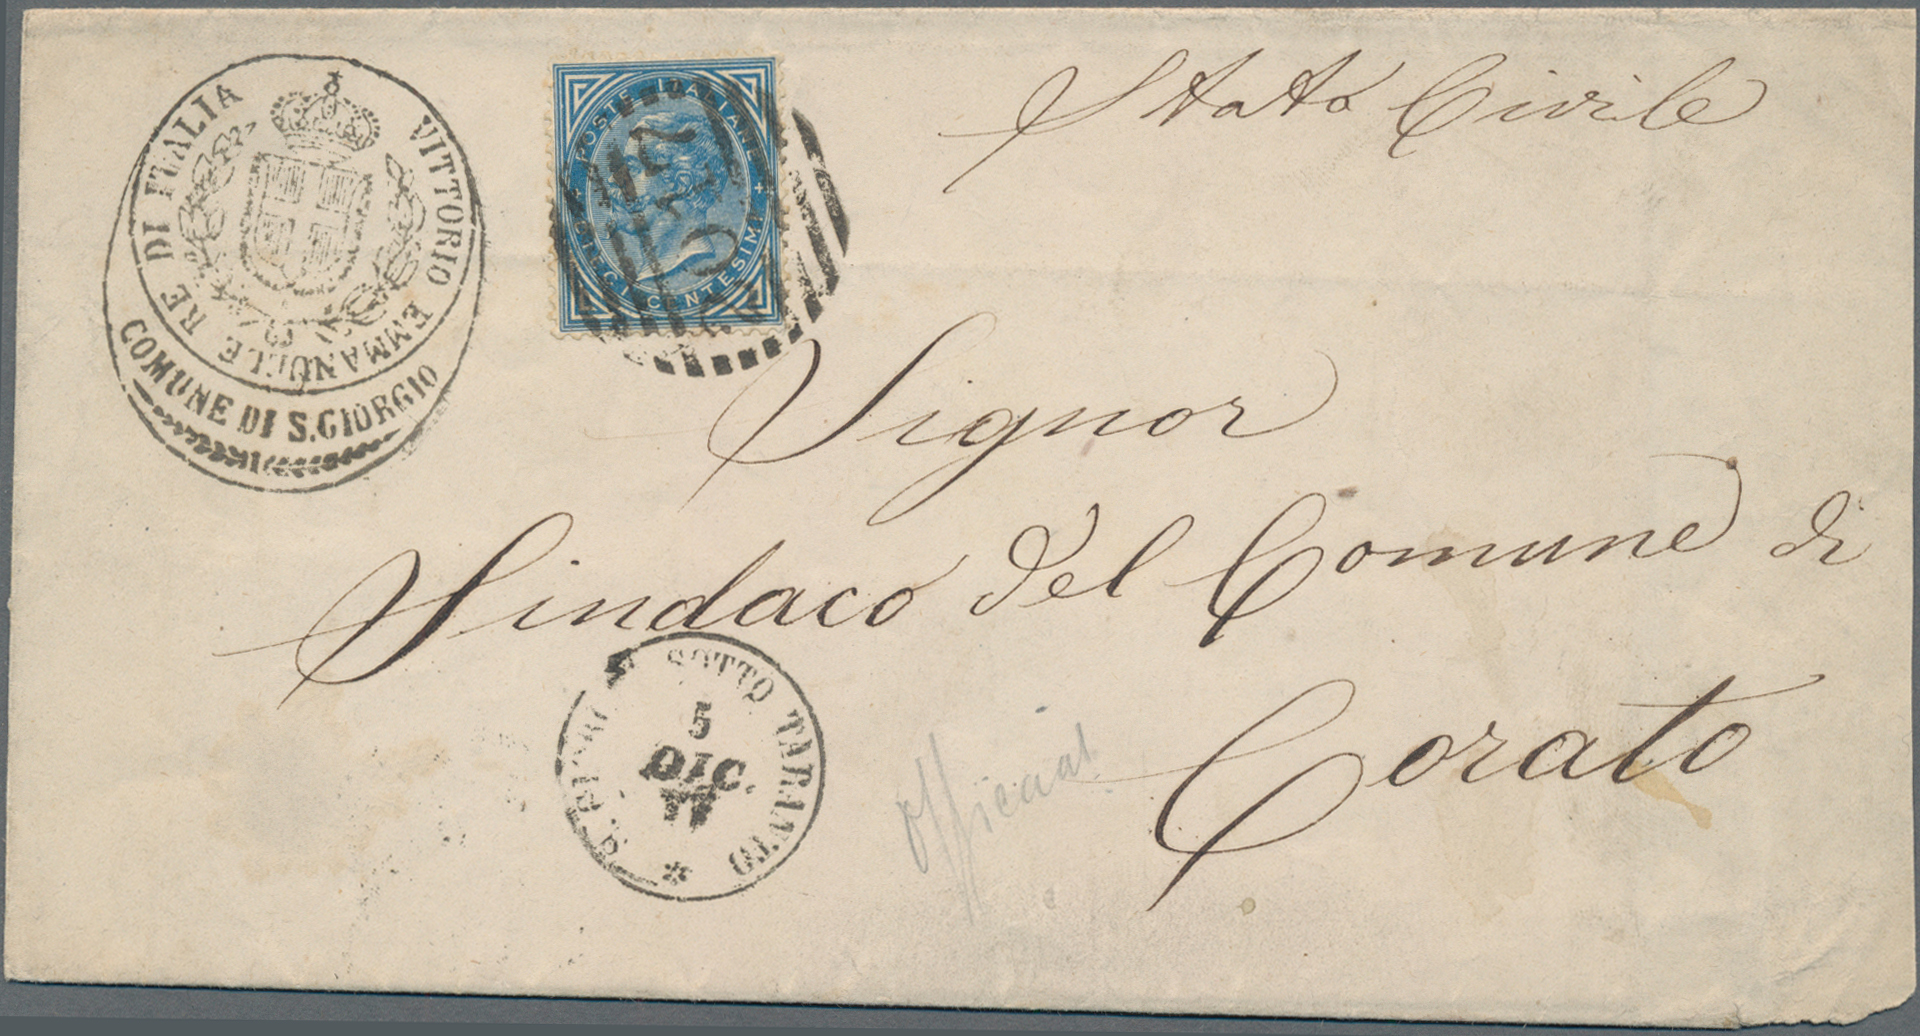 VITTORIO EMMANUELE RE DI ITALIA
COMUNE DI S. GIORGIO
POSTE ITALIANE
DIECI CENTESIMI
Stato Civile
Signor
Sindaco del Comune di
Corato
SOTTO TARANTO
5
DIC.
77
official